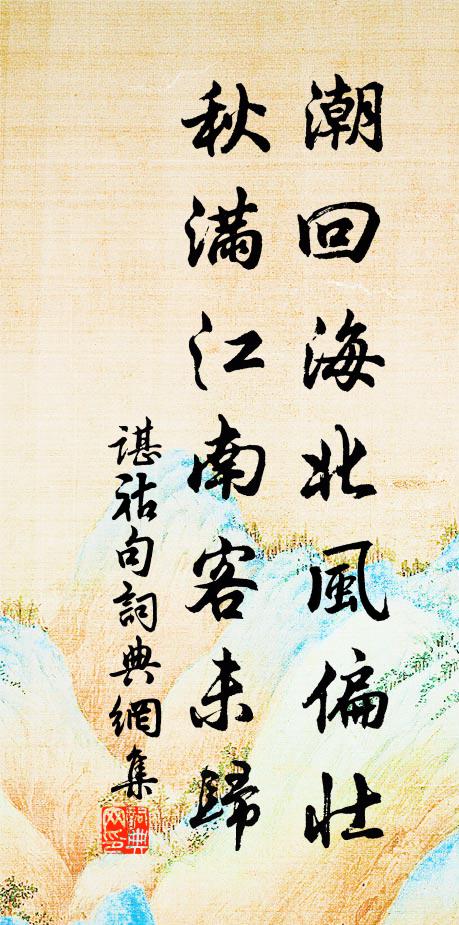 潮回海北風偏壮
秋滿江南客未歸
諶祜句詞典網集
詞典网印